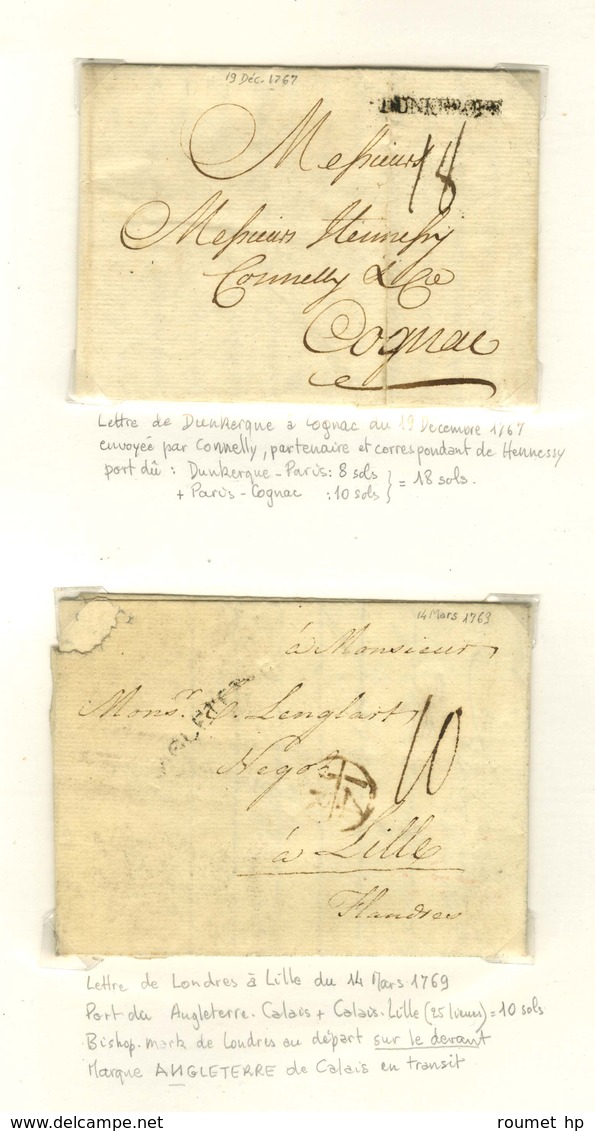 19 Déc. 1767
DUNKERQUE
Messieurs
18
Messieurs Hennessy
Connelly & Cie
Cognac
Lettre de Dunkerque à Cognac du 19 Décembre 1767
envoyée par Connelly, partenaire et correspondant de Hennessy
port dû : Dunkerque - Paris : 8 sols } = 18 sols.
+ Paris - Cognac : 10 sols
14 Mars 1769
à Monsieur
Monsr. Lenglart
10
Negot
à Lille
Flandres
Lettre de Londres à Lille du 14 Mars 1769
Port du Angleterre. Calais + Calais. Lille (25 lieues) = 10 sols
Bishop. mark de Londres au départ sur le devant
Marque ANGLETERRE de Calais en transit
roumet hp